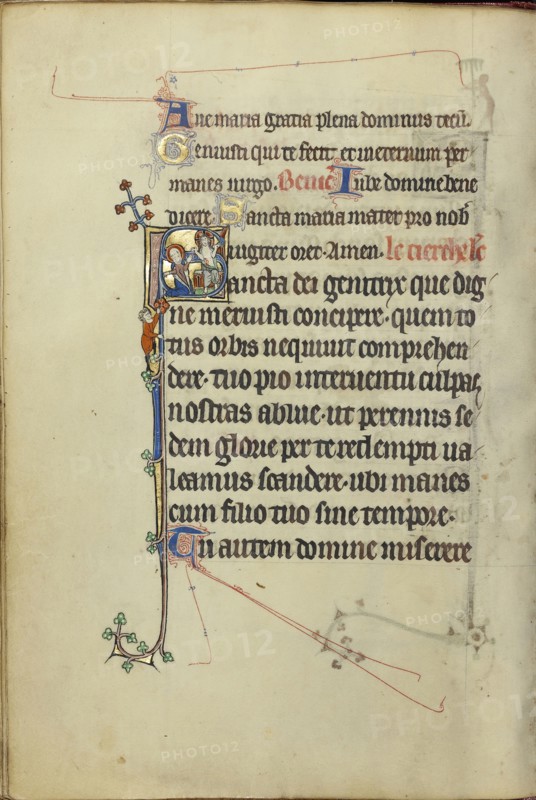 Ave maria gratia plena dominus tecū.
Genuisti qui te fecit et ineternum per
manes uirgo. Benic Iube domine bene
dicere. Sancta maria mater pro nob
iugiter oret. Amen.
Sancta dei genitrix que dig
ne meruisti concipere. quem to
tus orbis nequiuit comprehen
dere. tuo pio interuentu culpas
nostras ablue. ut perennis se
dem glorie per te redempti ua
leamus scandere. ubi manes
cum filio tuo sine tempore.
Tu autem domine miserere
PHOTO12